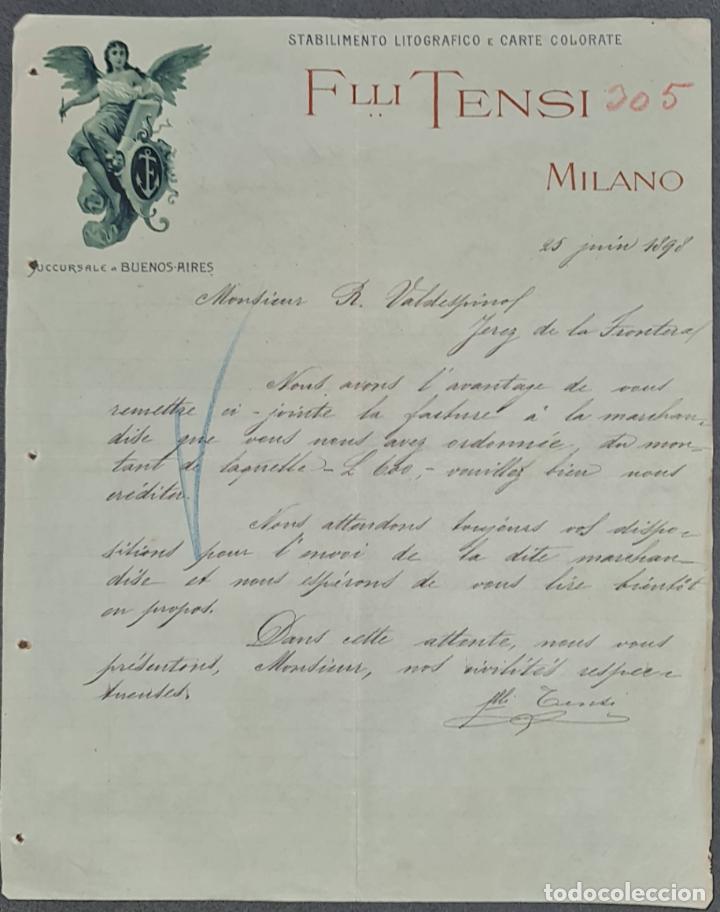 STABILIMENTO LITOGRAFICO E CARTE COLORATE
FLLI TENSI 305
MILANO
SUCCURSALE A BUENOS-AIRES
25 juin 1898
Monsieur R. Valdespino
Jerez de la Frontera
Nous avons l'avantage de vous
remettre ci-jointe la facture à la marchan-
dise que vous nous avez ordonnée, du mon-
tant de laquelle - L 600,- veuillez bien nous
créditer.
Nous attendons toujours vos dispo-
sitions pour l'envoi de la dite marchan-
dise et nous espérons de vous lire bientôt
en propos.
Dans cette attente, nous vous
présentons, Monsieur, nos civilités respec-
tueuses.
flli Tensi
todocoleccion.net